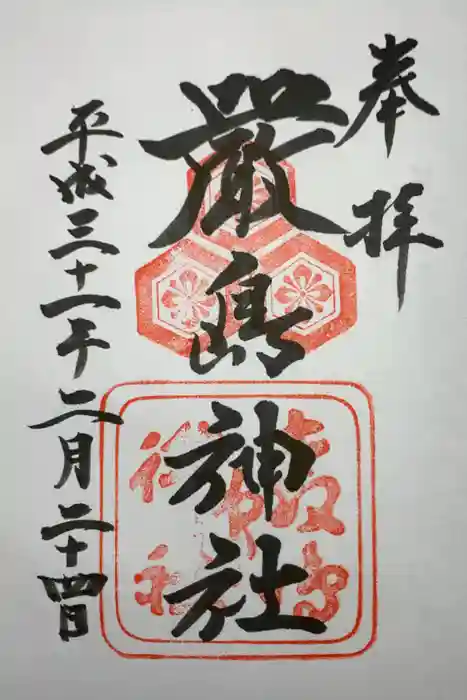 奉拝
嚴島神社
平成三十一年二月二十四日
嚴島
神社